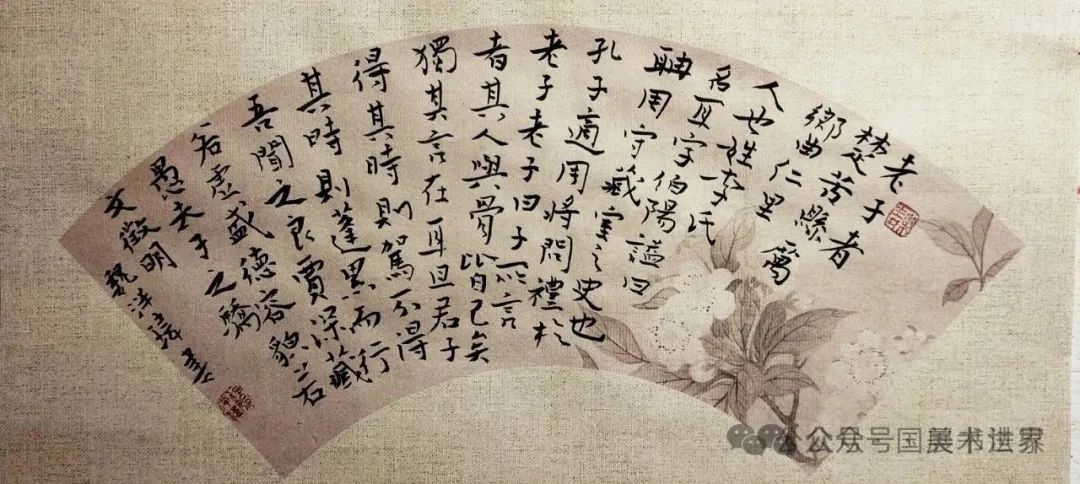 老子
楚苦縣者
鄉曲仁里厲
人也姓李氏
名耳字伯陽謚曰
聃周守藏室之史也
孔子適周將問禮於
老子老子曰子所言
者其人與骨皆已矣
獨其言在耳且君子
得其時則駕不得
其時則蓬累而行
吾聞之良賈深藏
若虛盛德容貌若
愚去子之驕
文徵明
公众号